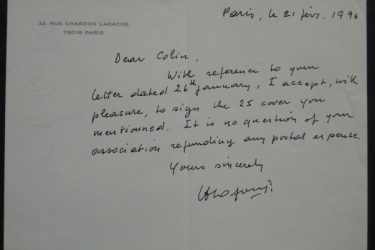 32 RUE CHARDON LAGACHE
75016 PARIS
Paris, le 21 févr. 1996
Dear Colin,
With reference to your
letter dated 26th january, I accept, with
pleasure, to sign the 25 cover you
mentionned. It is no question of your
association refunding any postal expense.
Yours sincerely